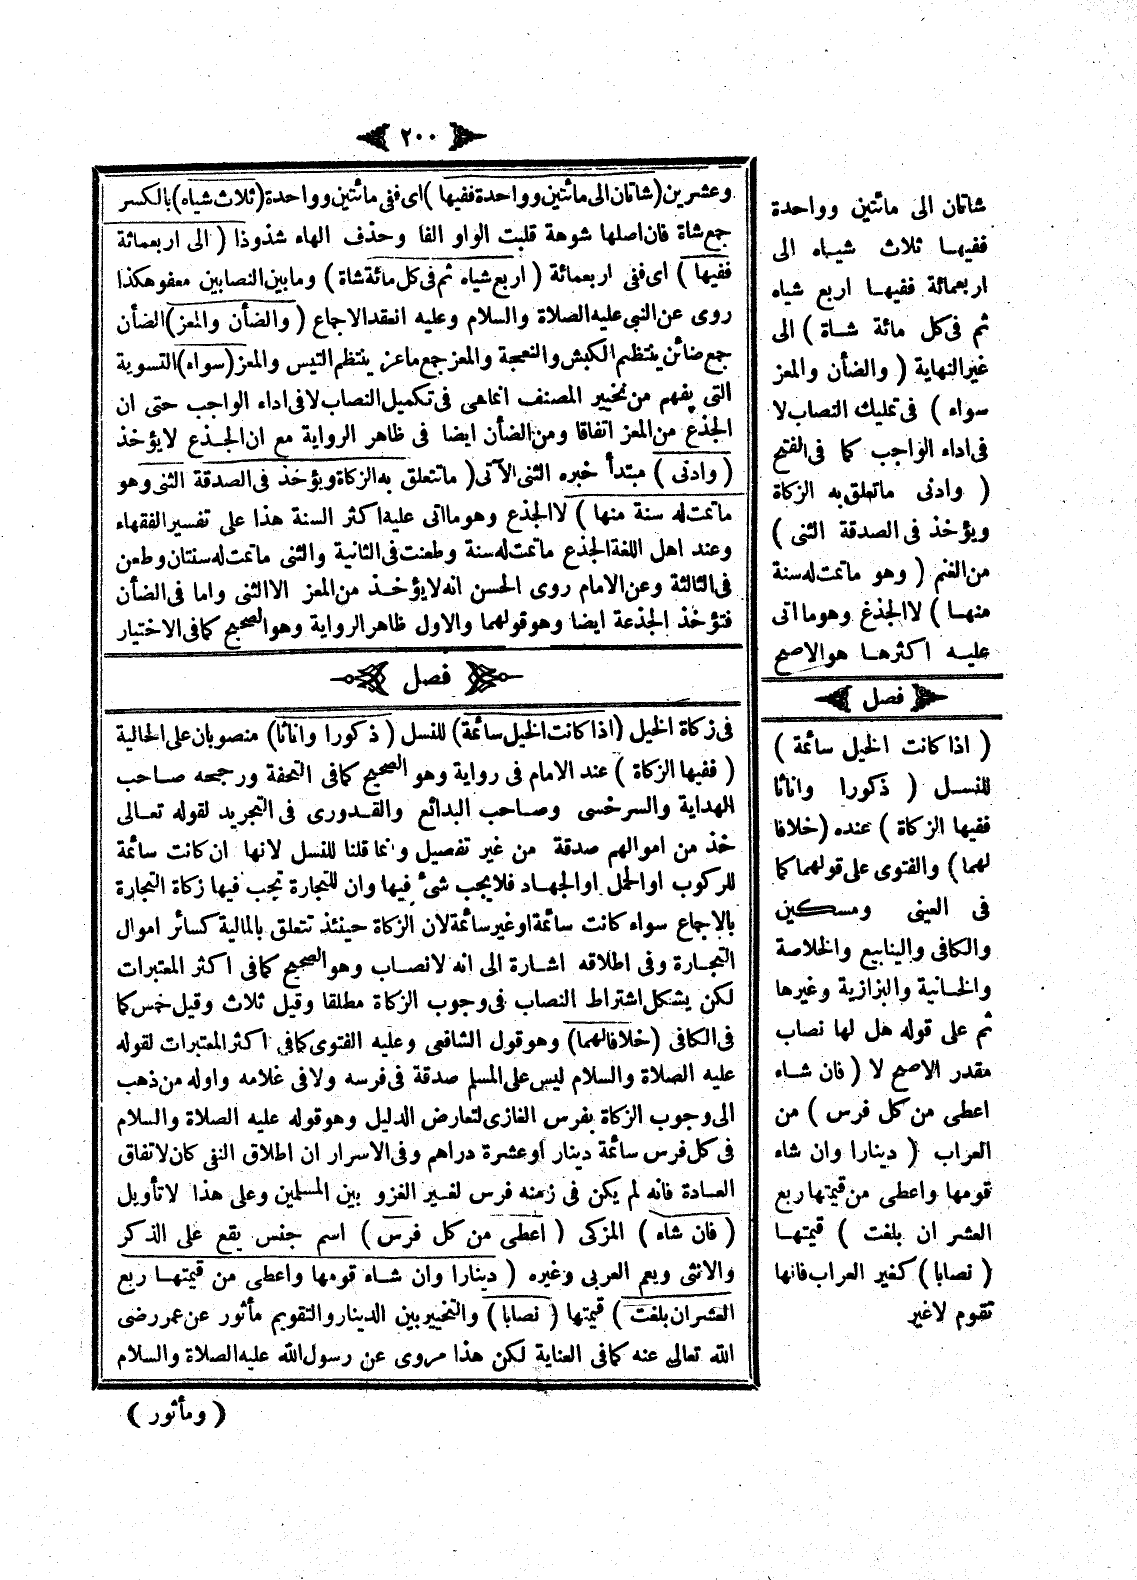 ٢٠٠
وعشرين (شاتان الى مائتين وواحدة ففيها) اى ففى مائتين وواحدة (ثلاث شياه) بالكسر
جمع شاة فان اصلها شوهة قلبت الواو الفا وحذف الهاء شذوذا ( الى اربعمائة
ففيها ) اى ففى اربعمائة ( اربع شياه ثم فى كل مائة شاة ) وما بين النصابين معفو هكذا
روى عن النبى عليه الصلاة والسلام وعليه انعقد الاجماع ( والضأن والمعز ) الضأن
جمع ضائن ينتظم الكبش والنعجة والمعز جمع ماعز ينتظم التيس والمعز (سواء) التسوية
التى يفهم من تخيير المصنف انما هى فى تكميل النصاب لا فى اداء الواجب حتى ان
الجذع من المعز اتفاقا ومن الضأن ايضا فى ظاهر الرواية مع ان الجذع لا يؤخذ
( وادنى ) مبتدأ خبره الثنى الآتى ( ما تتعلق به الزكاة ويؤخذ فى الصدقة الثنى وهو
ما تمت له سنة منها ) لا الجذع وهو ما اتى عليه اكثر السنة هذا على تفسير الفقهاء
وعند اهل اللغة الجذع ما تمت له سنة وطعنت فى الثانية والثنى ما تمت له سنتان وطعن
فى الثالثة وعن الامام روى الحسن انه لا يؤخذ من المعز الا الثنى واما فى الضأن
فتؤخذ الجذعة ايضا وهو قولهما والاول ظاهر الرواية وهو الصحيح كما فى الاختيار
فصل
فى زكاة الخيل (اذا كانت الخيل سائمة) للنسل ( ذكورا واناثا) منصوبان على الحالية
( ففيها الزكاة ) عند الامام فى رواية وهو الصحيح كما فى التحفة ورجحه صاحب
الهداية والسرخسى وصاحب البدائع والقدورى فى التجريد لقوله تعالى
خذ من اموالهم صدقة من غير تفصيل وانما قلنا للنسل لانها ان كانت سائمة
للركوب او الحمل او الجهاد فلا يجب شئ فيها وان للتجارة تجب فيها زكاة التجارة
بالاجماع سواء كانت سائمة او غير سائمة لان الزكاة حينئذ تتعلق بالمالية كسائر اموال
التجارة وفى اطلاقه اشارة الى انه لا نصاب وهو الصحيح كما فى اكثر المعتبرات
لكن يشكل اشتراط النصاب فى وجوب الزكاة مطلقا وقيل ثلاث وقيل خمس كما
فى الكافى (خلافا لهما) وهو قول الشافعى وعليه الفتوى كما فى اكثر المعتبرات لقوله
عليه الصلاة والسلام ليس على المسلم صدقة فى فرسه ولا فى غلامه واوله من ذهب
الى وجوب الزكاة بفرس الغازى لتعارض الدليل وهو قوله عليه الصلاة والسلام
فى كل فرس سائمة دينار او عشرة دراهم وفى الاسرار ان اطلاق النفى كان لاتفاق
العادة فانه لم يكن فى زمنه فرس لغير الغزو بين المسلمين وعلى هذا لا تأويل
( فان شاء ) المزكى ( اعطى من كل فرس ) اسم جنس يقع على الذكر
والانثى ويعم العربى وغيره ( دينارا وان شاء قومها واعطى من قيمتها ربع
العشر ان بلغت ) قيمتها ( نصابا ) والتخيير بين الدينار والتقويم مأثور عن عمر رضى
الله تعالى عنه كما فى العناية لكن هذا مروى عن رسول الله عليه الصلاة والسلام
( ومأثور )
شاتان الى مائتين وواحدة
ففيها ثلاث شياه الى
اربعمائة ففيها اربع شياه
ثم فى كل مائة شاة ) الى
غير النهاية ( والضأن والمعز
سواء ) فى تمليك النصاب لا
فى اداء الواجب كما فى الفتح
( وادنى ما تعلق به الزكاة
ويؤخذ فى الصدقة الثنى )
من الغنم ( وهو ما تمت له سنة
منها ) لا الجذغ وهو ما اتى
عليه اكثرها هو الاصح
فصل
( اذا كانت الخيل سائمة )
للنسل ( ذكورا واناثا
ففيها الزكاة ) عنده (خلافا
لهما) والفتوى على قولهما كما
فى العينى ومسكين
والكافى والينابيع والخلاصة
والخانية والبزازية وغيرها
ثم على قوله هل لها نصاب
مقدر الاصح لا ( فان شاء
اعطى من كل فرس ) من
العراب ( دينارا وان شاء
قومها واعطى من قيمتها ربع
العشر ان بلغت ) قيمتها
( نصابا ) كغير العراب فانها
تقوم لا غير